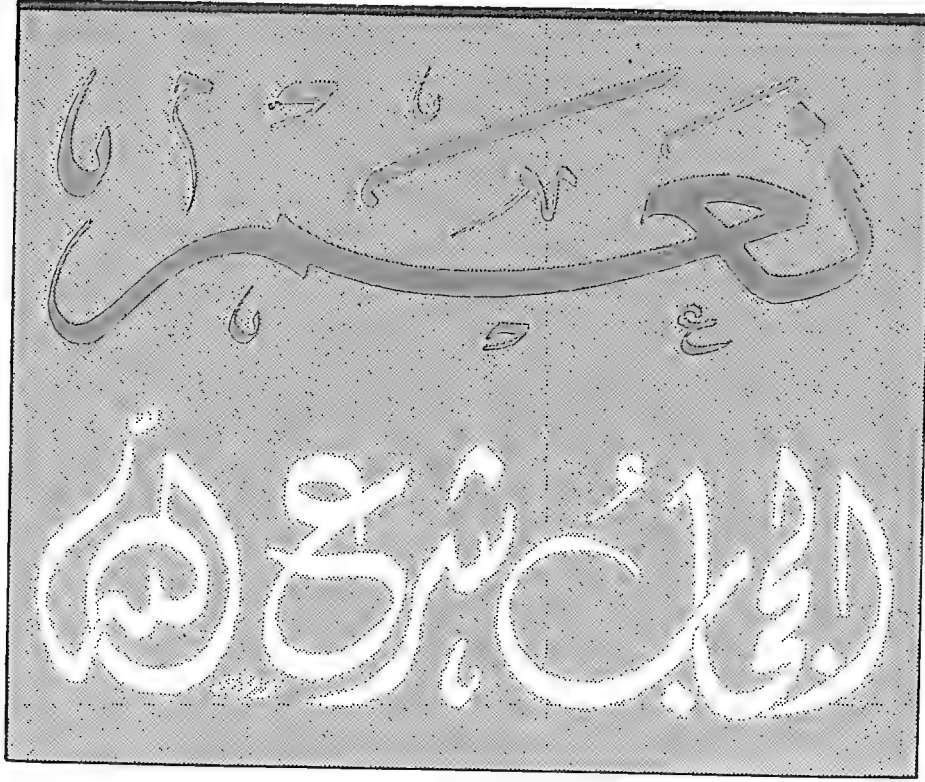 نعم
الحجابُ شرع الله